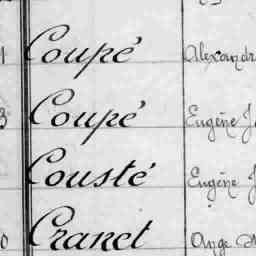 Coupé Alexandr
Coupé Eugène J
Cousté Eugène J
Cranet Ange